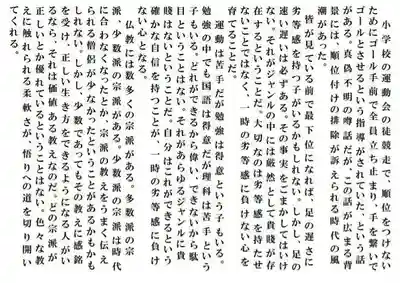 小学校の運動会の徒競走で、順位をつけない
ためにゴール手前で全員立ち止まり、手を繋いで
ゴールとさせるという指導がされていた、という話
がある。真偽不明の噂話だが、この話が広まる背
景には、順位付けの排除が訴えられる時代の風
潮があった。
皆が見ている前で最下位になれば、足の遅さに
劣等感を持つ子がいるかもしれない。しかし、足の
速い遅いは必ずある。その事実をごまかしてはいけ
ない。それがジャンルの中には厳然として貴賤が存
在するということだ。大切なのは劣等感を持たせ
ないことではなくて、一時の劣等感に負けない心を
育てることだ。
運動は苦手だが勉強は得意という子もいる。
勉強の中でも国語は得意だが理科は苦手という
子もいる。どれができるから偉い、できないから駄
目ということはない。それがあらゆるジャンルに貴
賤はないということだ。自分はこれができるという
確かな自信を持つことが、一時の劣等感に負け
ない心となる。
仏教には数多くの宗派がある。多数派の宗
派、少数派の宗派がある。少数派の宗派は時代
に合わなくなったとか、宗派の教えをうまく伝え
られる僧侶が少なかったということがあるかもか
しれない。しかし、少数であってもその教えに感銘
を受け、正しい生き方をできるようになる人がい
るなら、それは価値ある教えなのだ。どの宗派が
正しいとか優れているということはない。色々な教
えに触れられる柔軟さが、悟りへの道を切り開い
てくれる。